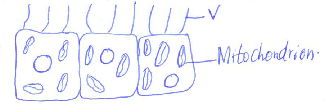 V
Mitochondrion.